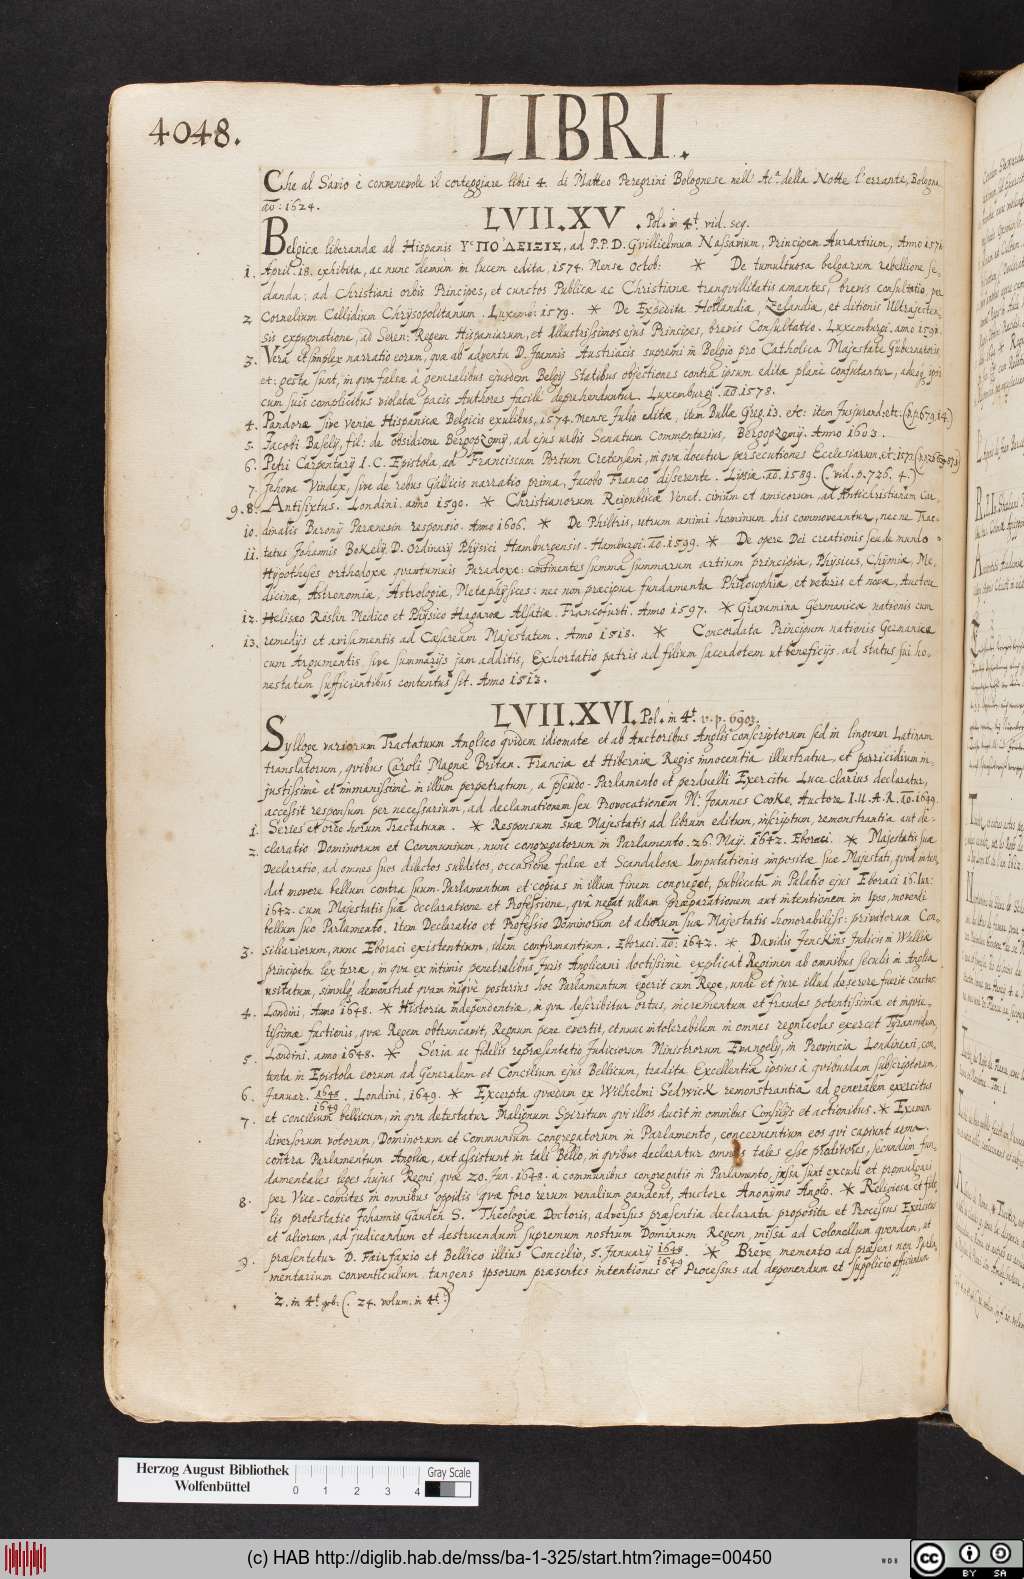 4048.
LIBRI.
Che al Savio è convenevole il corteggiare libri 4. di Matteo Peregrini Bolognese nell' Ac.a della Notte l'errante, Bologna
ao: 1624.
LVII.XV. Pol. in 4t. vid. seq.
Belgicæ liberandæ ab Hispanis ΥΠΟΔΕΙΞΙΣ, ad P.P.D. Gvillielmum Nassavium, Principem Aurantium, Anno 1571.
1. April. 18. exhibita, ac nunc demùm in lucem edita, 1574. Mense Octob: * De tumultuosa belgarum rebellione se-
danda: ad Christiani orbis Principes, et cunctos Publicæ ac Christianæ tranquillitatis amantes, brevis consultatio per
2 Cornelium Callidium Chrysopolitanum. Luxembi 1579. * De Expedita Hollandiæ, Zelandiæ, et ditionis Ultrajecten-
sis expugnatione, ad Seren: Regem Hispaniarum, et Illustrissimos ejus Principes, brevis Consultatio. Luxemburgi. amo
3. Vera et simplex narratio eorum, quæ ab adventu D. Joannis Austriacis supremi in Belgio pro Catholica Majestate Gubernatoris,
et: gesta sunt, in qva falsæ à generalibus ejusdem Belgij Statibus objectiones contra ipsum editæ plane confutantur, adeoq ipsi
cum suis complicibus violatæ pacis Authores facile deprehenduntur. Luxemburgi. ao. 1578.
4. Pandoræ sive veniæ Hispanicæ Belgicis exulibus, 1574. Mense Julio editæ, item Bullæ Greg. 13. etc: item Jusjurand: etc: (v.p. 679.14.)
5. Jacobi Baselij, fil: de obsidione Bergopzomij, ad ejus urbis Senatum Commentarius, Bergopzomij. Anno 1603.
6. Petri Carpentarij I.C. Epistola, ad Franciscum Portum Cretensem, in qva docetur persecutiones Ecclesiarum, etc. 1572
7. Jehova Vindex, sive de rebus Gallicis narratio prima, Jacobo Franco disserente. Lipsiæ. ao. 1589. (. vid. p. 726. 4.)
9. 8. Antisixtus. Londini. amo 1590. * Christianorum Reipublicæ Venet. civium et amicorum ad Antichristianam Car-
10. dinalis Baronij Parænesin responsio. Anno 1606. * De Philtris, utrum animi hominum his commoveantur, necne Trac-
11. tatus Johannis Bokelij, D. Ordinarij Physici Hamburgensis. Hamburgi. ao. 1599. * De opere Dei creationis seu de mundo
Hypotheses orthodoxæ qvantumvis Paradoxæ: continentes summa summarum artium principia, Physices, Chymiæ, Me-
dicinæ, Astronomiæ, Astrologiæ, Metaphysices: nec non præcipua fundamenta Philosophiæ, et veteris et novæ, Auctore
12. Helisæo Röslin Medico et Physico Hagaroæ Alsatiæ. Francofurti. Anno 1597. * Gravamina Germanicæ nationis cum
13. remedijs et avisamentis ad Cæsaream Majestatem. Anno 1518. * Concordata Principum nationis Germanicæ
cum Argumentis, sive summarijs jam additis, Exhortatio patris ad filium sacerdotem ut beneficijs ad status sui ho-
nestatem sufficientibus contentus sit. Anno 1513.
LVII.XVI. Pol. in 4t. v. p. 6903.
Sylloge variorum Tractatuum Anglico qvidem idiomate et ab Auctoribus Anglis conscriptorum sed in lingvam Latinam
translatorum, qvibus Caroli Magnæ Britan. Franciæ et Hiberniæ Regis innocentia illustratur, et parricidium in-
justissimè et immanissimè in illum perpetratum, a pseudo-Parlamento et perduelli Exercitu Luce clarius declaratur,
accessit responsum per necessarium, ad declamationem seu Provocationem Mri Joannes Cooke, Auctore I.U.A.R. ao. 1649.
1. Series et ordo horum Tractatuum. * Responsum suæ Majestatis ad librum editum, inscriptum, remonstrantia aut de-
2. claratio Dominorum et Communium, nunc congregatorum in Parlamento. 26. Maij. 1642. Eboraci. * Majestatis suæ
Declaratio, ad omnes suos dilectos subditos, occasione falsæ et Scandalosæ Imputationis impositæ suæ Majestati, qvod inten-
dat movere bellum contra suum Parlamentum et copias in illum finem congreget, publicata in Palatio ejus Eboraci 16. Iun:
1642. cum Majestatis suæ declaratione et Professione, qvâ negat ullam Præparationem aut intentionem in Ipso, movendi
bellum suo Parlamento. Item Declaratio et Professio Dominorum et aliorum suæ Majestatis honorabiliss: privatorum Con-
3. siliariorum, nunc Eboraci existentium, idem confirmantium. Eboraci. ao: 1642. * Davidis Jenckins Judicis in Walliæ
principatu lex terræ, in qva ex intimis penetralibus Juris Anglicani doctissimè explicat Regimen ab omnibus seculis in Anglia
usitatum, simulq demonstrat qvam iniqvè posterius hoc Parlamentum egerit cum Rege, unde et jure illud deserere fuerit coactus.
4. Londini, Anno 1648. * Historia independentiæ, in qva describitur ortus, incrementum et fraudes potentissimæ et inqvie-
tissimæ factionis, qvæ Regem obtruncavit, Regnum pene evertit, et nunc intolerabilem in omnes regnicolas exercet Tyrannidem,
5. Londini. amo 1648. * Seria ac fidelis repræsentatio Judiciorum Ministrorum Evangelij, in Provincia Londinensi, con-
tenta in Epistola eorum ad Generalem et Concilium ejus Bellicum, tradita Excellentiæ ipsius à qvibusdam subscriptorum,
6. Januar. 1648/1649. Londini, 1649. * Excerpta qvædam ex Wilhelmi Sedwick remonstrantia ad generalem exercitus
7. et concilium bellicum, in qva detestatur Malignum Spiritum qvi illos ducit in omnibus Consilijs et actionibus. * Examen
diversorum votorum, Dominorum et Communium congregatorum in Parlamento, concernentium eos qvi capiunt arma
contra Parlamentum Angliæ, aut assistunt in tali Bello, in qvibus declaratur omnes tales esse proditores, secundum fun-
damentales leges hujus Regni, qvæ 20. Jun. 1648. a communibus congregatis in Parlamento, jussa sunt excudi et promulgari
per Vice-comites in omnibus oppidis qvæ foro rerum venalium gaudent, Auctore Anonymo Anglo. * Religiosa et fide-
8. lis protestatio Johannis Gauden S. Theologiæ Doctoris, adversus præsentia declarata proposita et Processus Exercitus
et aliorum, ad judicandum et destruendum supremum nostrum Dominum Regem, missa ad Colonellum qvendam, ut
præsentetur D. Fairfaxio et Bellico illius Concilio, 5. Januarij 1648/1649. * Breve memento ad præsens non Parla-
9. mentarium conventiculum tangens ipsorum præsentes intentiones et Processus ad deponendum et supplicio afficiendum
2. in 4t. grb: (. 24. volum. in 4t.)
Herzog August Bibliothek
Wolfenbüttel
0 1 2 3 4
Gray Scale
(c) HAB http://diglib.hab.de/mss/ba-1-325/start.htm?image=00450
WDB
cc BY SA